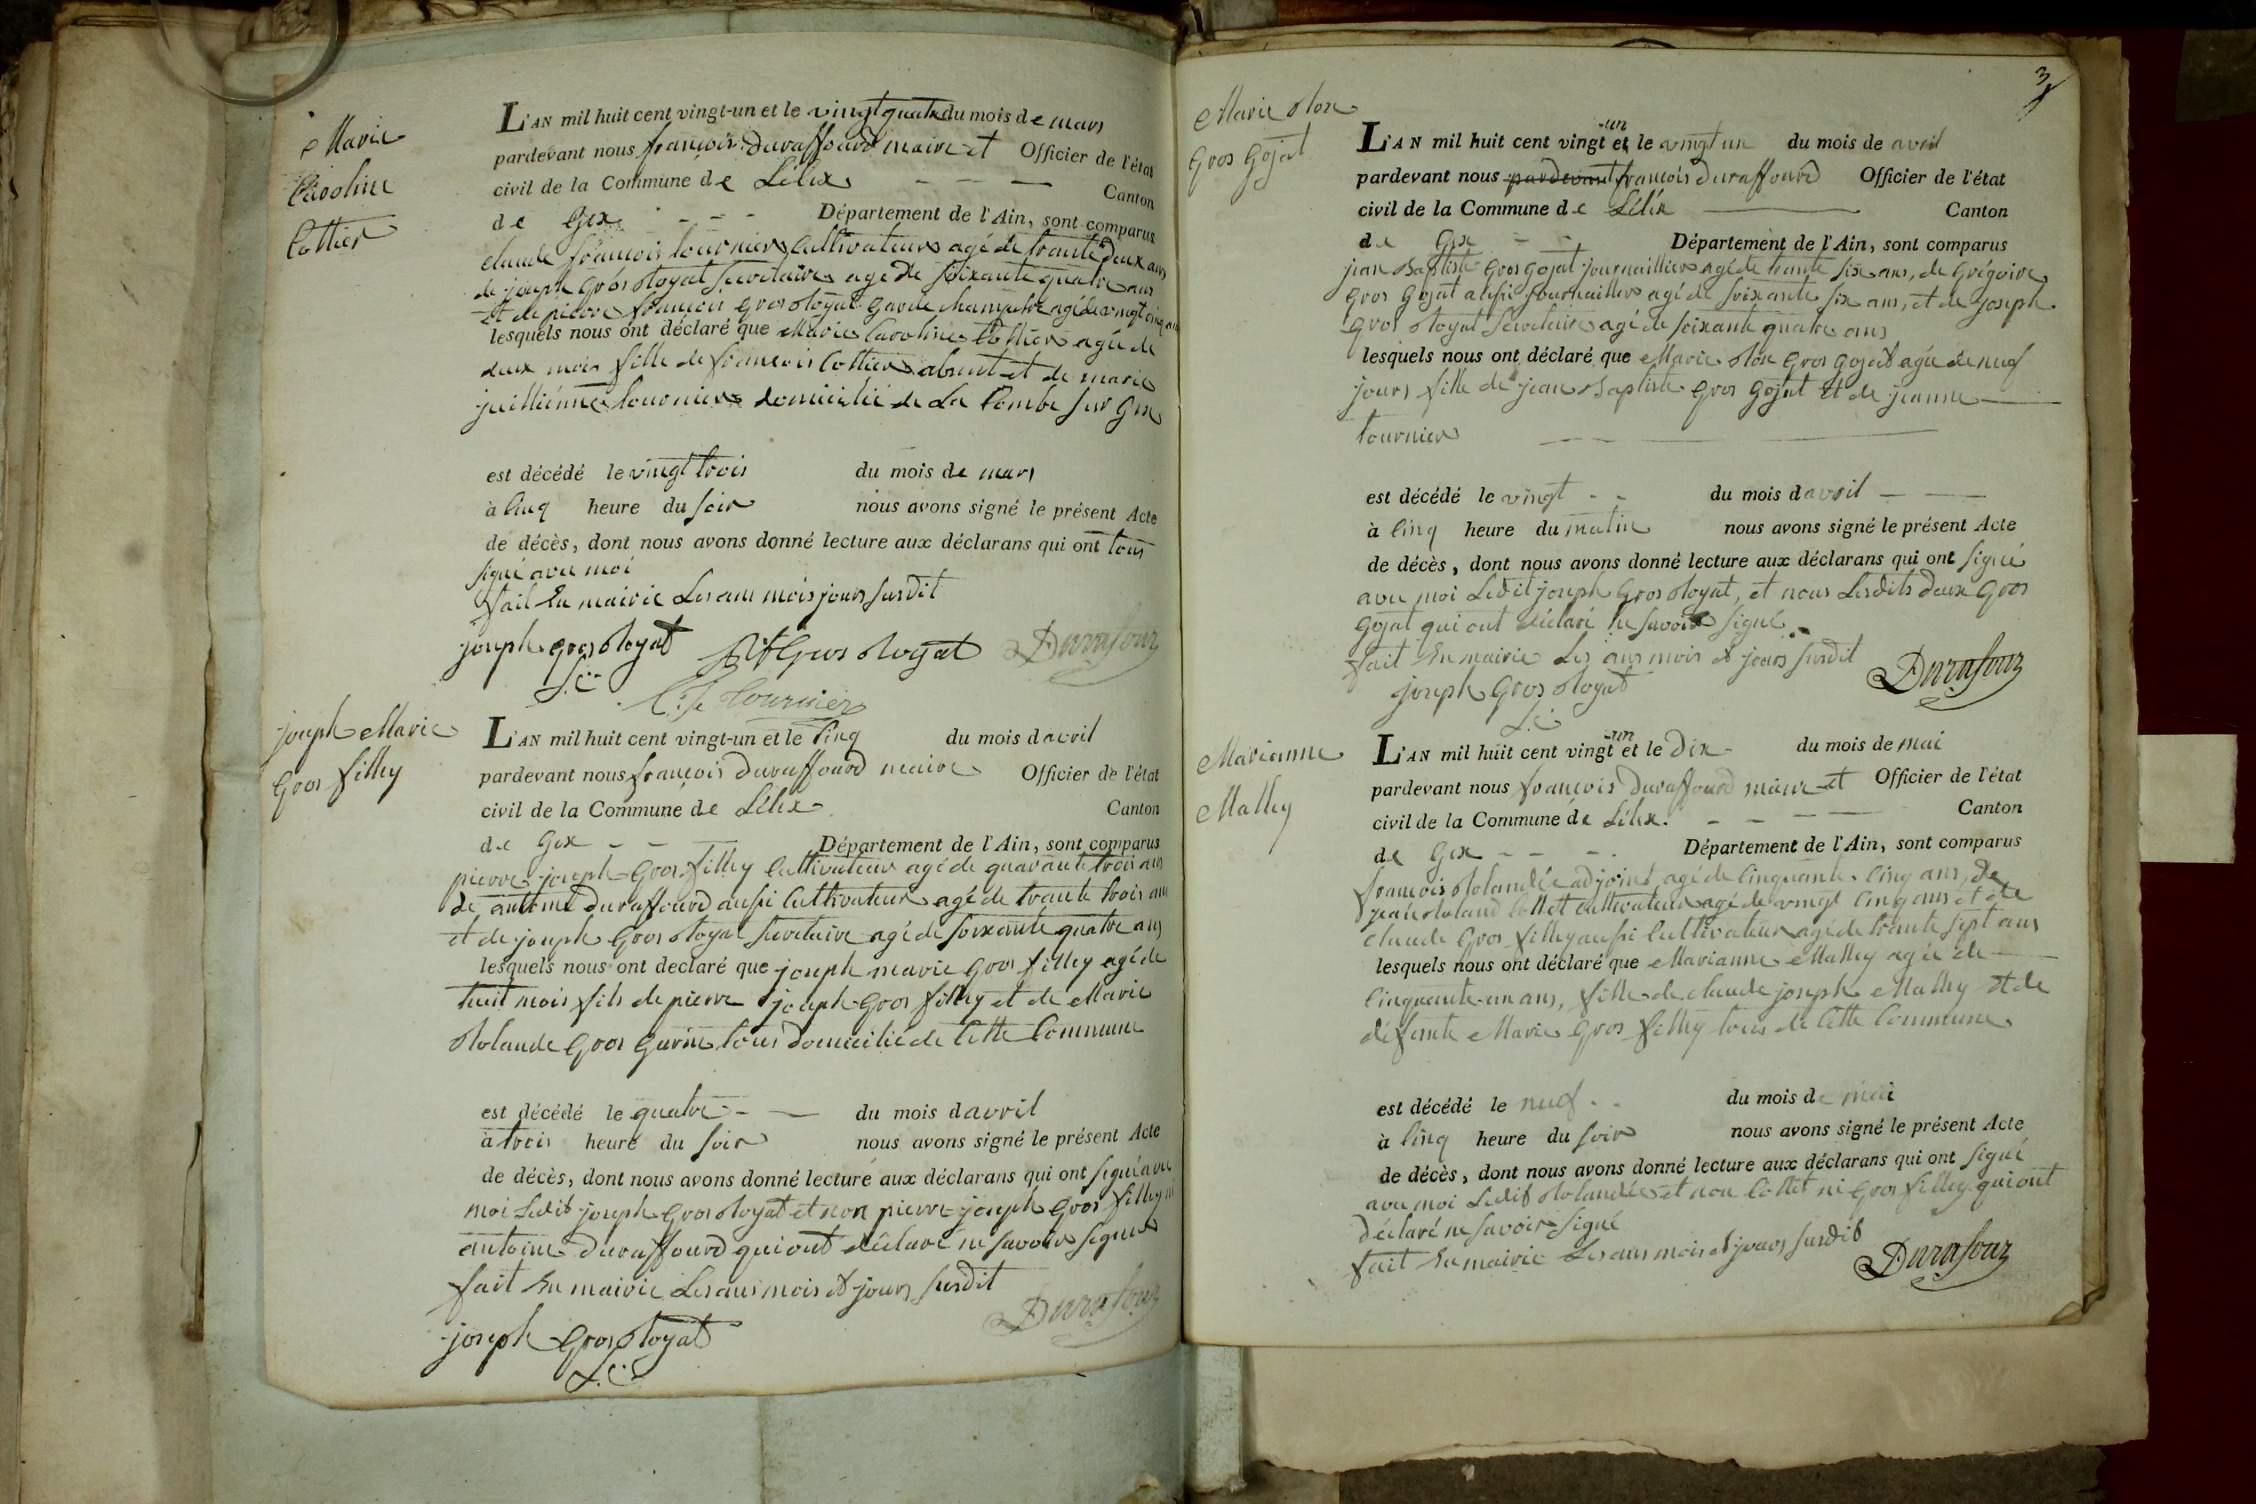 Marie
Caroline
Cottier
L'AN mil huit cent vingt-un et le vingt quatre du mois de mars
pardevant nous françois Duraffourd maire et Officier de l'état
civil de la Commune de Lélex - - - Canton
de Gex - - - Département de l'Ain, sont comparus
claude françois tournier Cultivateur agé de trante deux ans
de joseph Gros Royat Secrétaire agé de soixante quatre ans
et de pierre françois Gros Royat garde Champetre agé de vingt cinq ans
lesquels nous ont déclaré que Marie Caroline Cottier agée de
deux mois fille de françois Cottier absent et de marie
juillienne tournier domicilié de La Combe sur Gex
est décédé le vingt trois du mois de mars
à Cinq heure du soir nous avons signé le présent Acte
de décès, dont nous avons donné lecture aux déclarans qui ont tous
signé avec moi
fait En mairie Les ans mois jours susdit
joseph Gros Royat Gros Royat Durafour
S.C.
C. f. Tournier
joseph Marie
Gros filley
L'AN mil huit cent vingt-un et le Cinq du mois d avril
pardevant nous françois Duraffourd maire Officier de l'état
civil de la Commune de Lélex Canton
de Gex - - - Département de l'Ain, sont comparus
pierre joseph Gros filley Cultivateur agé de quarante trois ans
de antoine Duraffourd aussi Cultivateur agé de trante trois ans
et de joseph Gros Royat Secretaire agé de soixante quatre ans
lesquels nous ont declaré que joseph marie Gros filley agé de
huit mois fils de pierre joseph Gros filley et de Marie
Rolande Gros Gurin tous domicilié de Cette Commune
est décédé le quatre - - du mois d avril
à trois heure du soir nous avons signé le présent Acte
de décès, dont nous avons donné lecture aux déclarans qui ont signé avec
moi Ledit joseph Gros Royat et non pierre joseph Gros filley ni
antoine Duraffourd qui ont déclaré ne savoir signer
fait En mairie Les ans mois et jours susdit
joseph Gros Royat Durafour
S.C.
3
Marie Rose
Gros Gojat
L'AN mil huit cent vingt -un et le vingt un du mois de avril
pardevant nous pardevant françois Duraffourd Officier de l'état
civil de la Commune de Lélex Canton
de Gex - - Département de l'Ain, sont comparus
jean Baptiste Gros Gojat journaillier agé de trante six ans, de Grégoire
Gros Gojat aussi journaillier agé de soixante six ans, et de joseph
Gros Royat Secretaire agé de soixante quatre ans
lesquels nous ont déclaré que Marie Rose Gros Gojat agée de neuf
jours fille de jean Baptiste Gros Gojat et de jeanne
tournier
est décédé le vingt - - du mois d avril
à Cinq heure du matin nous avons signé le présent Acte
de décès, dont nous avons donné lecture aux déclarans qui ont signé
avec moi Ledit joseph Gros Royat, et nous Lesdits deux Gros
Gojat qui ont déclaré ne savoir signé
fait En mairie Les ans mois et jours susdit
joseph Gros Royat Durafour
S.C.
Marianne
Malley
L'AN mil huit cent vingt -un et le Dix du mois de mai
pardevant nous françois Duraffourd maire et Officier de l'état
civil de la Commune de Lélex. - - - Canton
de Gex - - - Département de l'Ain, sont comparus
françois adjoint agé de Cinquante Cinq ans, de
jean Roland Collet cultivateur agé de vingt Cinq ans et de
claude Gros filley aussi Cultivateur agé de trante sept ans
lesquels nous ont déclaré que Marianne Malley agée de
Cinquante un ans, fille de claude joseph Malley et de
défunte Marie Gros filley tous de Cette Commune
est décédé le neuf - - du mois de mai
à Cinq heure du soir nous avons signé le présent Acte
de décès, dont nous avons donné lecture aux déclarans qui ont signé
avec moi Ledit et non Collet ni Gros filley qui ont
déclaré ne savoir signé
fait En mairie Les ans mois et jours susdit Durafour